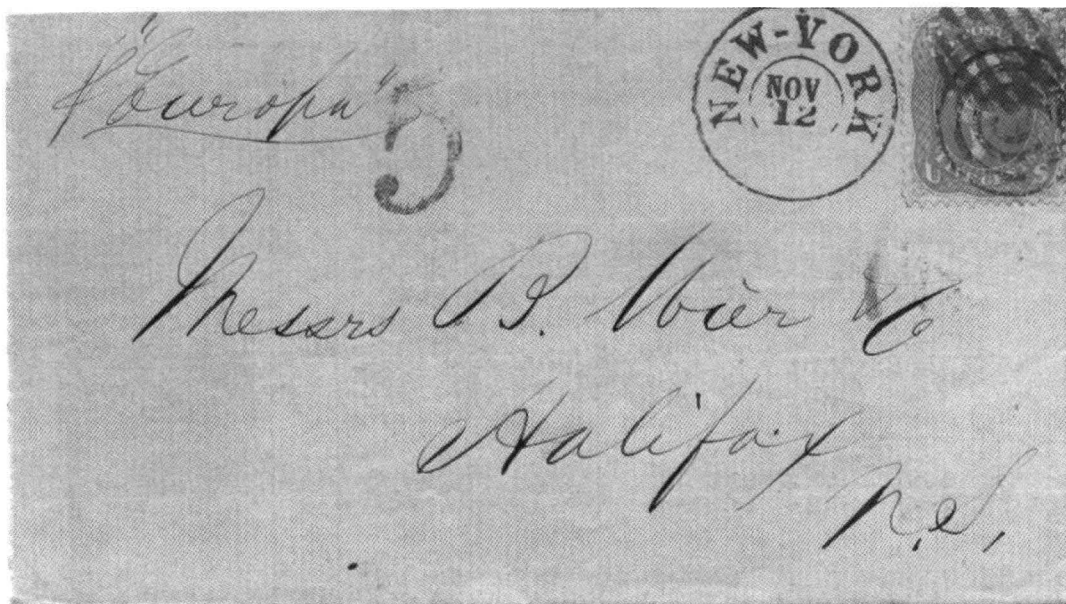 p "Europa"
5
NEW-YORK
NOV
12
U S
Messrs B. Wier & Co
Halifax
N.S.